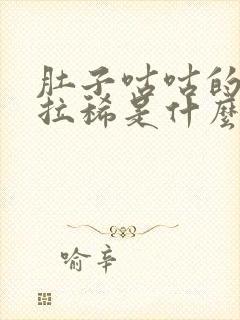 肚子咕咕的
拉稀是什麼
喻辛